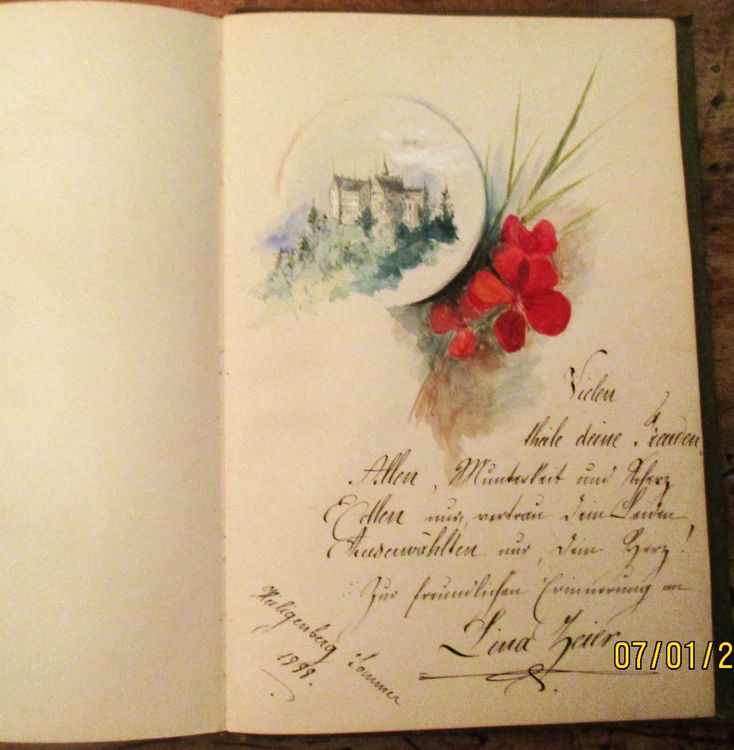 Vielen
theile deine Freuden,
Allen, Munterkeit und Scherz
Edlen nur, vertrau dein Leiden
Auserwählten nur, dein Herz!
Zur freundlichen Erinnerung an
Lina Zeier
Heiligenberg Sommer
1888.
07/01/2